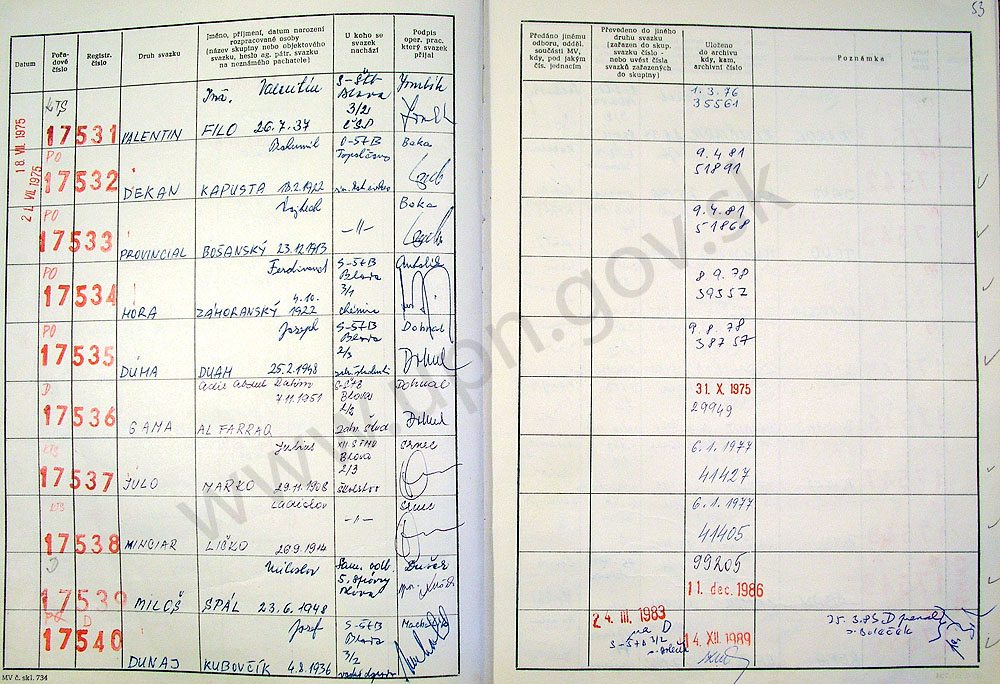 Datum
Pořadové číslo
Registr. číslo
Druh svazku
Jméno, příjmení, datum narození rozpracované osoby
(název skupiny nebo objektového svazku, heslo ag. pátr. svazku na neznámého pachatele)
U koho se svazek nachází
Podpis oper. prac. který svazek přijal
Předáno jinému odboru, odděl. součásti MV, kdy, pod jakým čís. jednacím
Převedeno do jiného druhu svazku (zařazen do skup. svazku číslo - nebo uvést čísla svazků zařazených do skupiny)
Uloženo do archivu kdy, kam, archivní číslo
Poznámka
53
18 VII. 1975
KTS
17531
VALENTIN
Valentín
FILO 26.7.37
S-ŠtB
Blava
3/2
1.3.76
35561
2 VII. 1975
PO
17532
DEKAN
Bohumil
KAPUSTA 18.2.1922
O-ŠtB
Boka
9.4.81
51891
PO
17533
PROVINCIAL
Vojtech
BOŠANSKÝ 23.12.1913
-11-
Boka
9.4.81
51868
PO
17534
HORA
Ferdinand
ZÁHORANSKÝ 4.10.1922
S-ŠtB
Blava
3/1
8 9. 78
39357
PO
17535
DÚMA
Joseph
DUAH 25.2.1948
S-ŠtB
Blava
2/3
Dohnal
9.8.78
38757
D
17536
GAMA
7.11.1951
AL FARRAQ
S-ŠtB
Blava
2/2
Dohnal
31. X. 1975
29949
KTS
17537
JULO
Július
MARKO 29.11.1908
Blava
2/3
Školstvo
Srnec
6.1.1977
41427
KTS
17538
MINCIAR
Ladislav
LIČKO 26.9.1914
-11-
Srnec
6.1.1977
41405
17539
MILOŠ
Miloslav
SPÁL 23.6.1948
99205
11. dec. 1986
PO D
17540
DUNAJ
Jozef
KUBOVČÍK 4.8.1936
S-ŠtB
Blava
3/2
24. III. 1983
na D
S-ŠtB 3/2
14. XII. 1989
25.3.83 D
MV č. skl. 734
www.upn.gov.sk